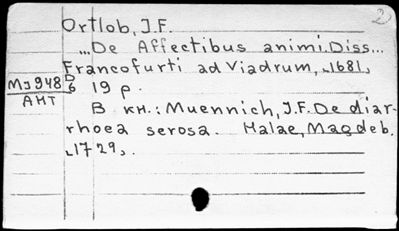 2
Ortlob, J.F.
...De Affectibus animi. Diss...
Francofurti ad Viadrum, 1681,
Mэ948 D/6 19 p.
АНТ
В кн.: Muennich, J.F. De diar-
rhoea serosa. Halae, Magdeb.
1729.